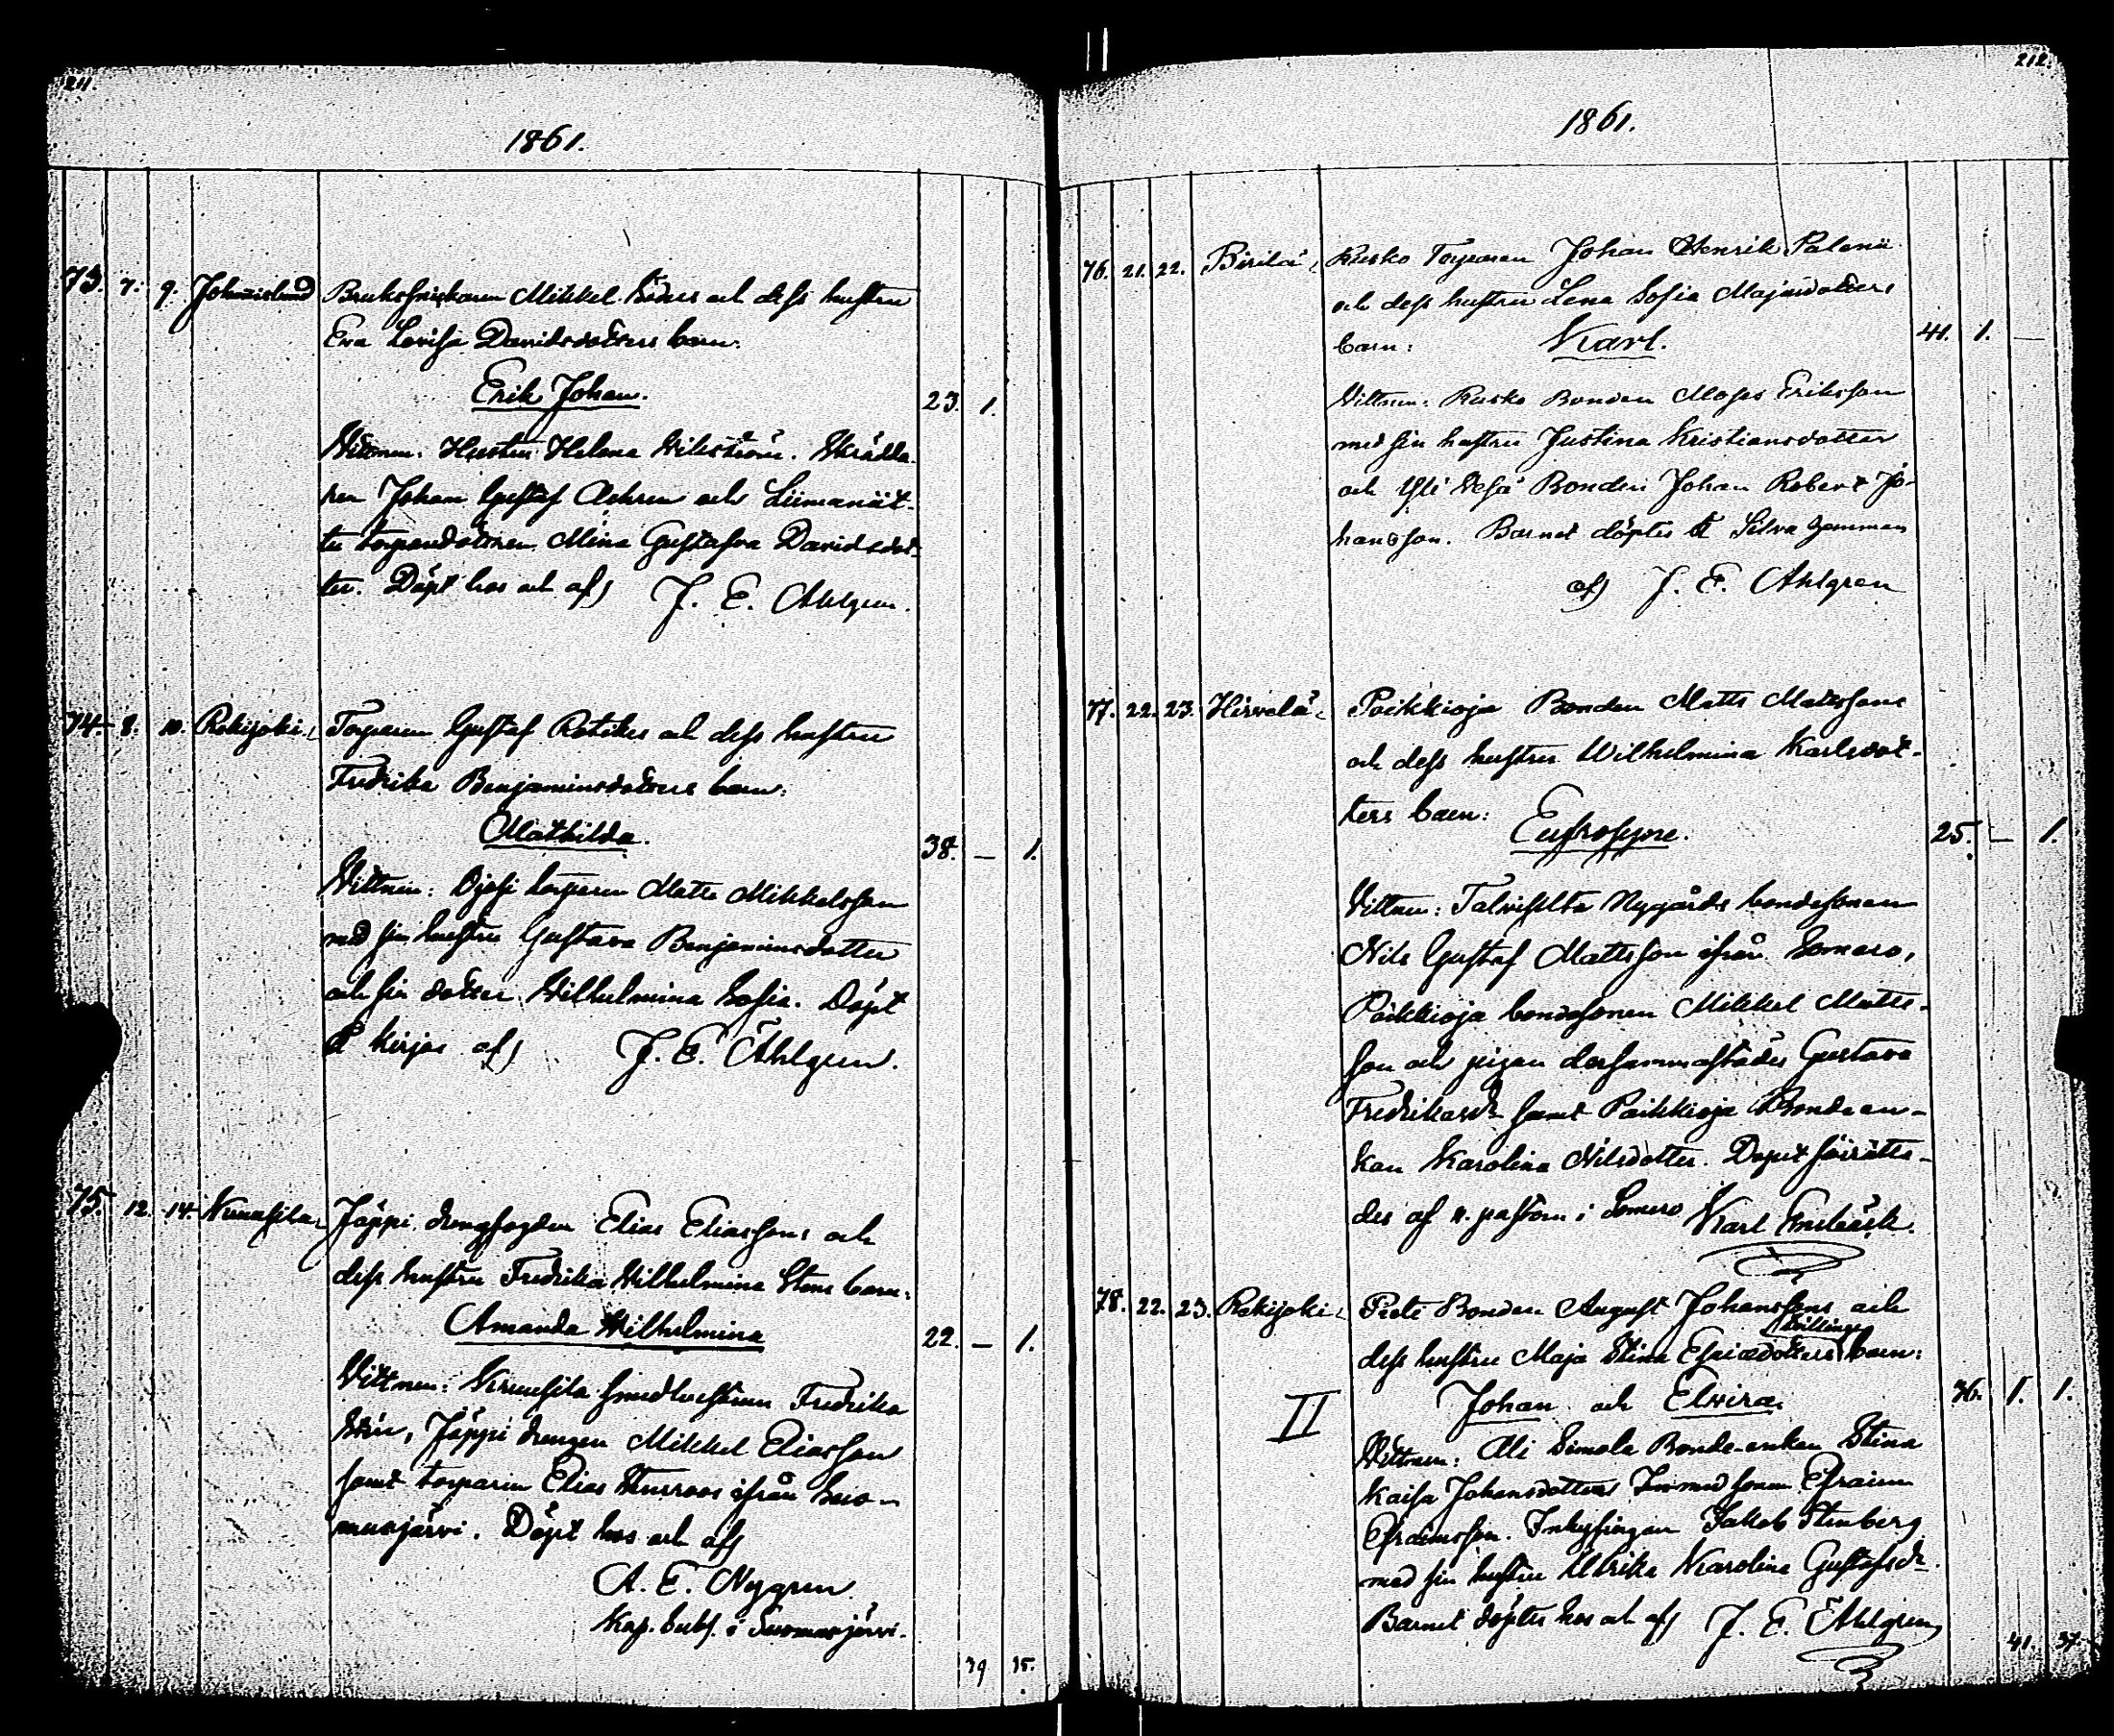 211.
1861.
73. 7. 9. Johannislund Mikkel och dess hustru
Eva Lovisa Davidsdotters barn:
Erik Johan.
23. 1.
Vittnen: Hustru Helena Wikström. Skrädda-
ren Johan Gustaf och
Mina Gustafva Davidsdot-
ter. Döpt hos och af J. E. Ahlgren.
74. 8. 10. Rekijoki. Torparen Gustaf och dess hustru
Fredrika Benjaminsdotters barn:
Mathilda.
38. — 1.
Vittnen: torparen Matts Mikkelsson
med sin hustru Gustava Benjaminsdotter
och sin dotter Wilhelmina Sofia. Döpt
å af J. E. Ahlgren.
75. 12. 14. Kruusila Jäppi drengfogden Elias Eliassons och
dess hustru Fredrika Wilhelmina Stens barn:
Amanda Wilhelmina
22. — 1.
Vittnen: Kruusila smedhustrun Fredrika
Jäppi drengen Mikkel Eliasson
samt torparen Elias ifrån Suo-
musjärvi. Döpt hos och af
A. E. Nygren
Kap. Subst. i Suomusjärvi.
39 35.
212.
1861.
76. 21. 22. Pirilä Kusko Torparen Johan Henrik
och dess hustru Lena Sofia
barn: Karl.
41. 1. —
Vittnen: Kusko Bonden Moses Eriksson
med sin hustru Justina Kristiansdotter
och Yli Bonden Johan Robert Jo-
hansson. Barnet döptes å
af J. E. Ahlgren
77. 22. 23. Hirvelä Poikkioja Bonden Matts Matssons
och dess hustru Wilhelmina Karlsdot-
ters barn: Eufrosyne.
25. — 1.
Vittnen: Nygårds bondesonen
Nils Gustaf Mattsson ifrån Somero,
Poikkioja bondesonen Mikkel Matts-
son och pigan dersammastädes Gustava
Fredriksdr samt Poikkioja Bondeen-
kan Karolina Nilsdotter. Döpt förätta-
des af v. pastorn i Somero Karl
78. 22. 23. Rekijoki Bonden August Johanssons och
tvillingar
dess hustru Maja Stina barn:
II Johan och Elvira.
36. 1. 1.
Vittnen: Ali Simola Bonde-enkan Stina
Kaisa Johansdotter med sonen Efraim
Efraimsson. Inhysingen Jakob Stenberg
med sin hustru Ulrika Karolina Gustafsdr.
Barnet döptes hos och af J. E. Ahlgren
41. 37.